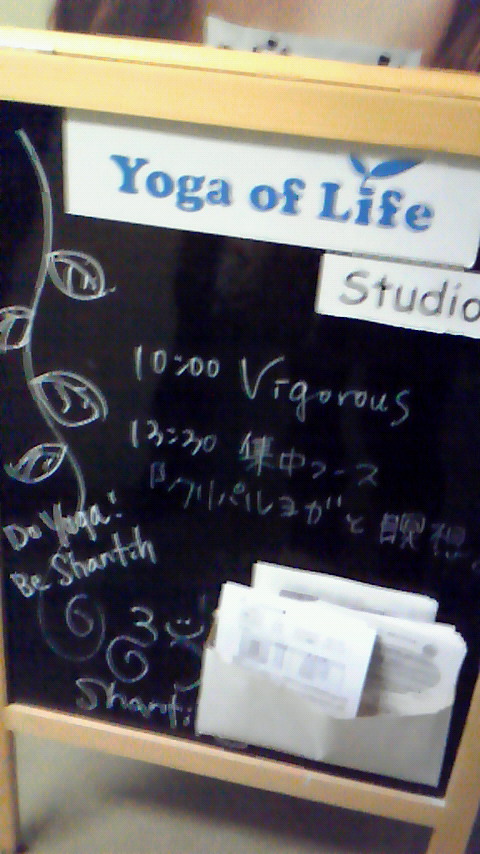 Yoga of Life
Studio
10:00 Vigorous
13:30 集中コース
『クリパルヨガと瞑想
Do Yoga!
Be Shantih
Shanti